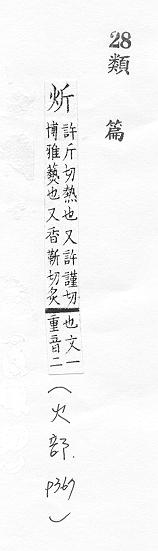 28類篇
炘
許斤切熱也又許謹切
博雅爇也又香靳切炙
也文一
重音二
(火部. p367)